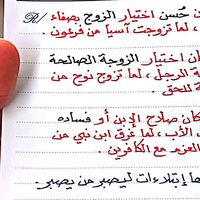 حُسن اختيار الزوج بصفاء
، لما تزوجت آسيا من فرعون .
ان اختيار الزوجة الصالحة
الرجل ، لما تزوج نوح من
للحق .
كان صلاح الإبن أو فساده
الأب ، لما غرق ابن نبي من
العزم مع الكافرين .
إبتلاءات ليصبر من يصبر .